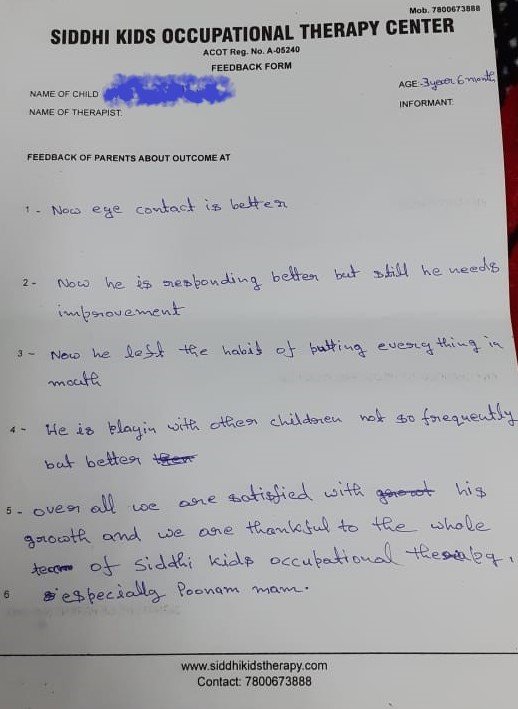 Mob. 7800673888
SIDDHI KIDS OCCUPATIONAL THERAPY CENTER
ACOT Reg. No. A-05240
FEEDBACK FORM
NAME OF CHILD
AGE: 3 year 6 month
NAME OF THERAPIST:
INFORMANT:
FEEDBACK OF PARENTS ABOUT OUTCOME AT
1 - Now eye contact is better
2 - Now he is responding better but still he needs
improvement
3 - Now he left the habit of putting everything in
mouth
4 - He is playin with other children not so frequently
but better
5 - over all we are satisfied with his
growth and we are thankful to the whole
team of Siddhi kids occupational therapy,
6 especially Poonam mam.
www.siddhikidstherapy.com
Contact: 7800673888